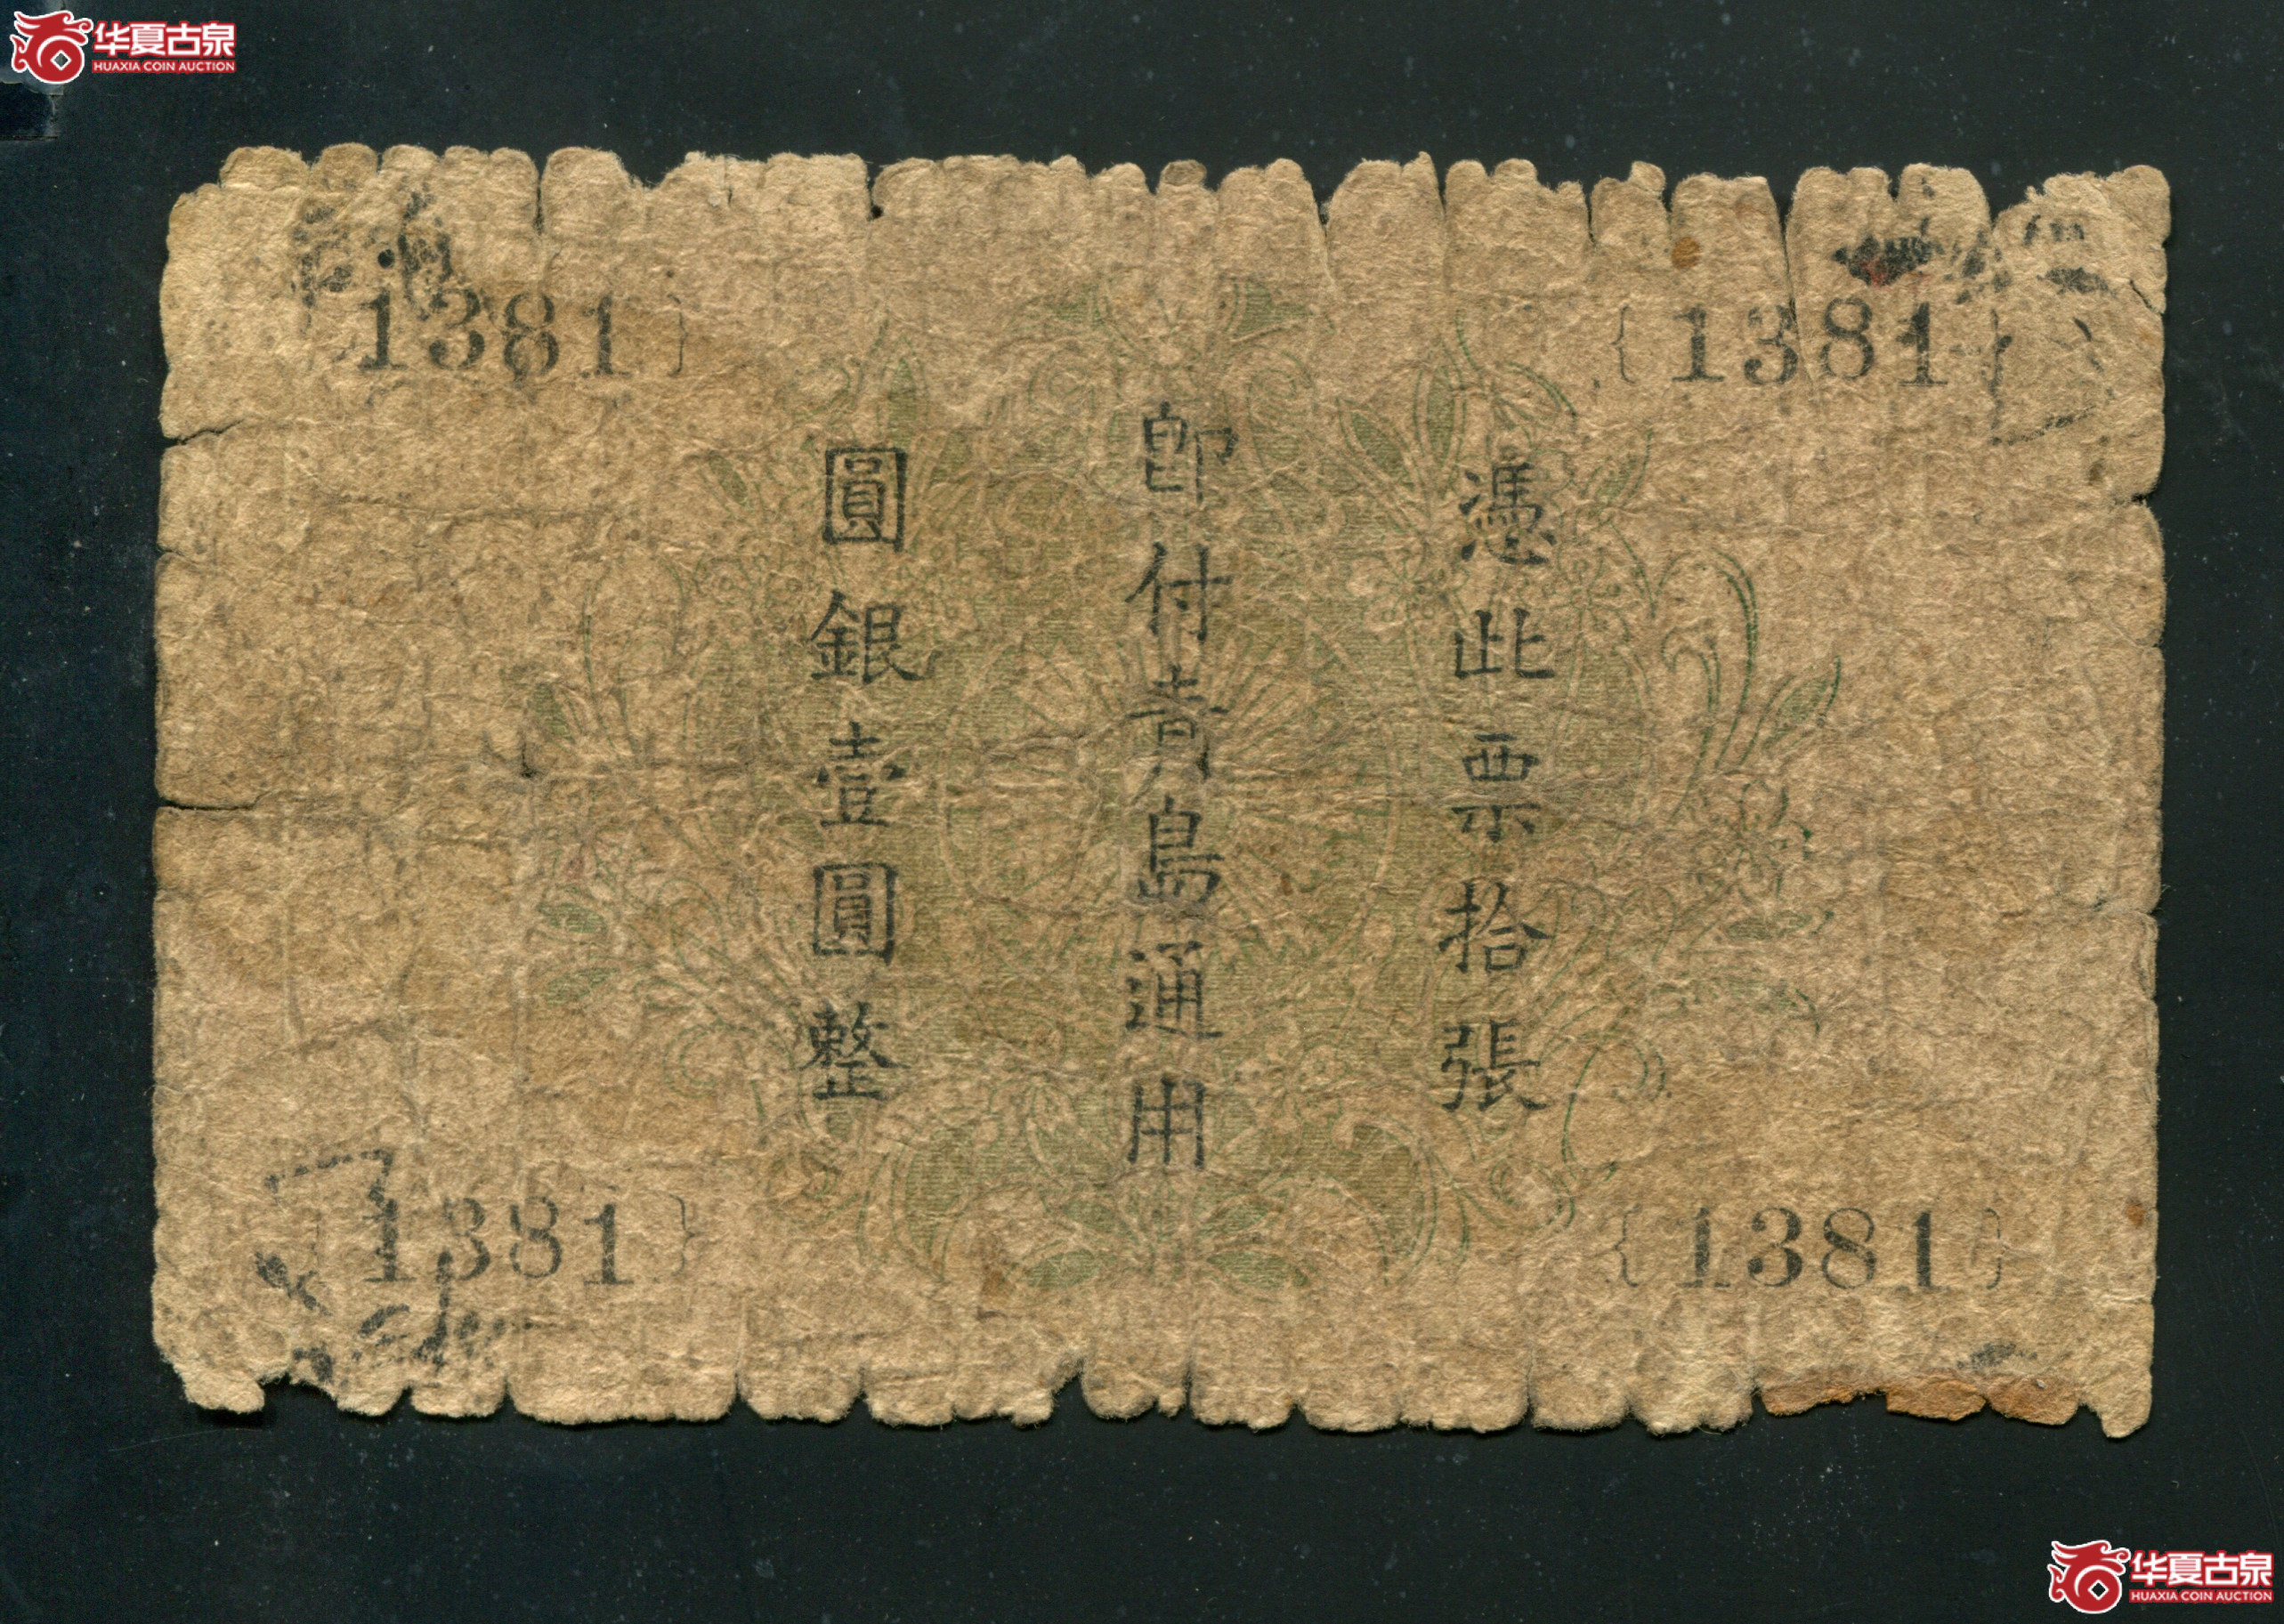 华夏古泉
HUAXIA COIN AUCTION
1381}
{1381}
憑此票拾張
即付青島通用
圓銀壹圓整
1381}
{1381}
华夏古泉
HUAXIA COIN AUCTION